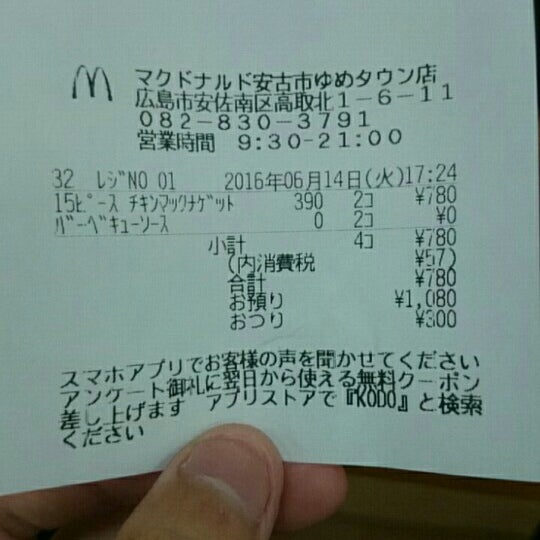 マクドナルド安古市ゆめタウン店
広島市安佐南区高取北1-6-11
082-830-3791
営業時間 9:30-21:00
32 ﾚｼﾞNO 01 2016年06月14日(火)17:24
15ﾋﾟｰｽ ﾁｷﾝﾏｯｸﾅｹﾞｯﾄ 390 2ｺ ¥780
ﾊﾞｰﾍﾞｷｭｰｿｰｽ 0 2ｺ ¥0
小計 4ｺ ¥780
(内消費税 ¥57)
合計 ¥780
お預り ¥1,080
おつり ¥300
スマホアプリでお客様の声を聞かせてください
アンケート御礼に翌日から使える無料クーポン
差し上げます アプリストアで『KODO』と検索
ください